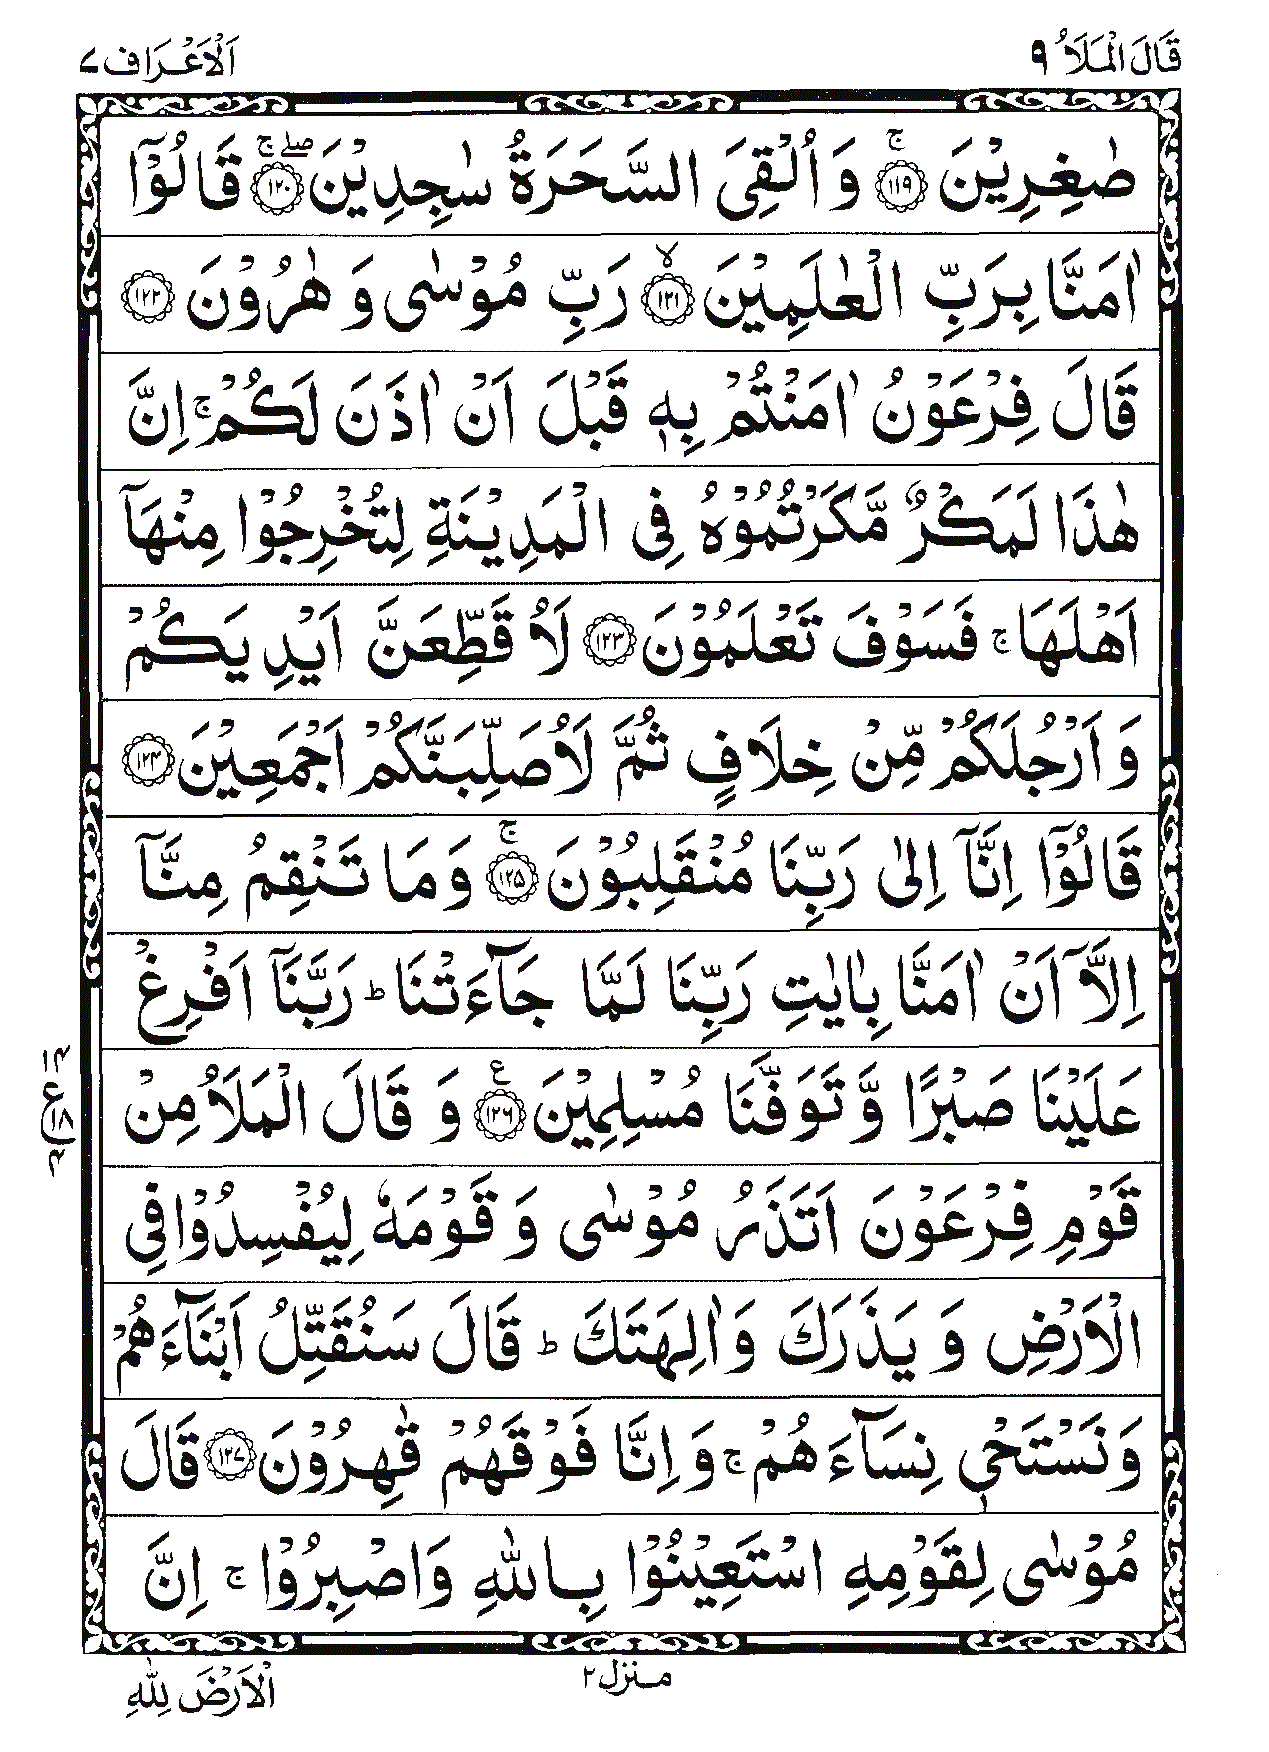 قَالَ الْمَلَاُ ٩
اَلْاَعْرَاف ٧
صٰغِرِيْنَ ۚ ﴿١١٩﴾ وَ اُلْقِىَ السَّحَرَةُ سٰجِدِيْنَ ۖۚ ﴿١٢٠﴾ قَالُوْۤا
اٰمَنَّا بِرَبِّ الْعٰلَمِيْنَ ۙ ﴿١٢١﴾ رَبِّ مُوْسٰى وَ هٰرُوْنَ ﴿١٢٢﴾
قَالَ فِرْعَوْنُ اٰمَنْتُمْ بِهٖ قَبْلَ اَنْ اٰذَنَ لَكُمْ ۚ اِنَّ
هٰذَا لَمَكْرٌ مَّكَرْتُمُوْهُ فِى الْمَدِيْنَةِ لِتُخْرِجُوْا مِنْهَاۤ
اَهْلَهَا ۚ فَسَوْفَ تَعْلَمُوْنَ ﴿١٢٣﴾ لَاُ قَطِّعَنَّ اَيْدِيَكُمْ
وَ اَرْجُلَكُمْ مِّنْ خِلَافٍ ثُمَّ لَاُصَلِّبَنَّكُمْ اَجْمَعِيْنَ ﴿١٢٤﴾
قَالُوْۤا اِنَّاۤ اِلٰى رَبِّنَا مُنْقَلِبُوْنَ ۚ ﴿١٢٥﴾ وَ مَا تَنْقِمُ مِنَّاۤ
اِلَّاۤ اَنْ اٰمَنَّا بِاٰيٰتِ رَبِّنَا لَمَّا جَآءَتْنَا ؕ رَبَّنَاۤ اَفْرِغْ
عَلَيْنَا صَبْرًا وَّ تَوَفَّنَا مُسْلِمِيْنَ ﴿١٢٦﴾ ع وَ قَالَ الْمَلَاُ مِنْ
١٤
ع ١٨
٤
قَوْمِ فِرْعَوْنَ اَتَذَرُ مُوْسٰى وَ قَوْمَهٗ لِيُفْسِدُوْا فِى
الْاَرْضِ وَ يَذَرَكَ وَ اٰلِهَتَكَ ؕ قَالَ سَنُقَتِّلُ اَبْنَآءَهُمْ
وَ نَسْتَحْىٖ نِسَآءَهُمْ ۚ وَ اِنَّا فَوْقَهُمْ قٰهِرُوْنَ ﴿١٢٧﴾ قَالَ
مُوْسٰى لِقَوْمِهِ اسْتَعِيْنُوْا بِاللّٰهِ وَ اصْبِرُوْا ۚ اِنَّ
منزل ٢
الْاَرْضَ لِلّٰهِ